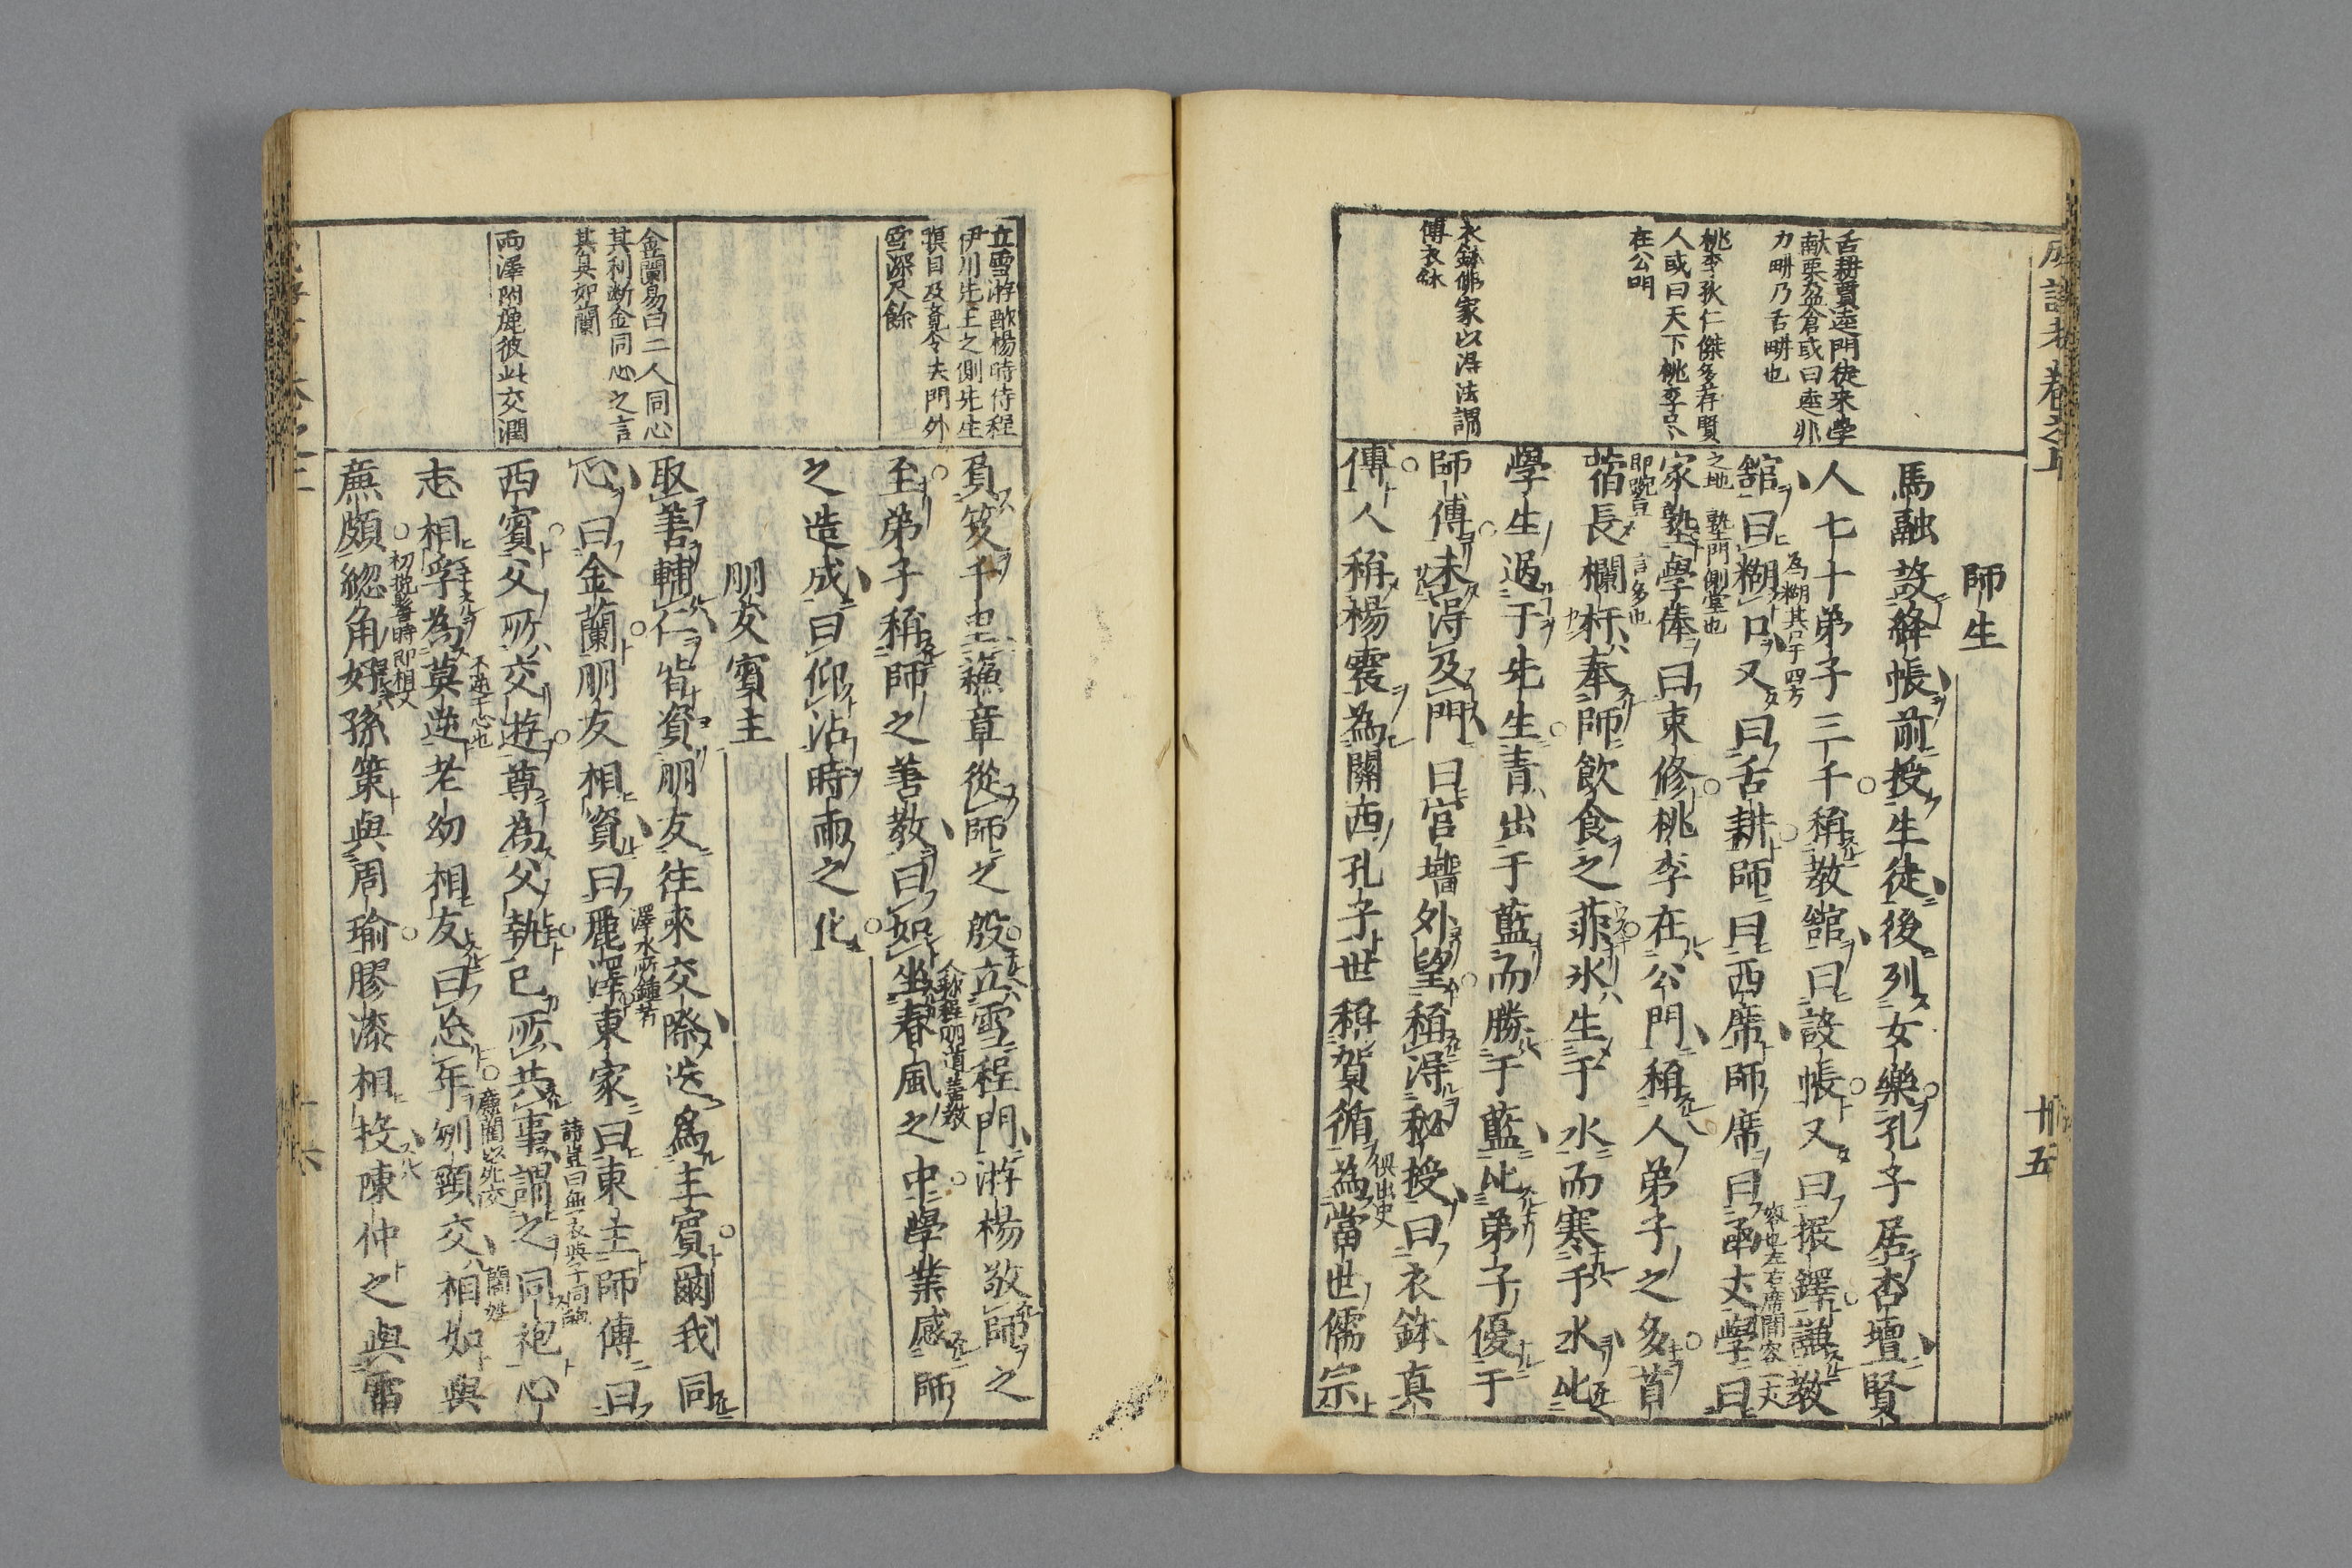 師生
馬融設絳帳前授生徒後列女樂孔子居杏壇賢
人七十弟子三千稱教舘曰設帳又曰振鐸謙教
舘曰糊口又曰舌耕師曰西席師席曰函丈學曰
家塾學俸曰束修桃李在公門稱人弟子之多苜
蓿長欄杆奉師飲食之菲氷生于水而寒于水比
學生過于先生青出于藍而勝于藍比弟子優于
師傅未得及門曰官墻外望稱得秘授曰衣鉢真
傳人稱楊震為關西孔子世稱賀循為當世儒宗
舌耕賈逵門徒來學
献粟盈倉或曰逵非
力畊乃舌畊也
桃李狄仁傑多荐賢
人或曰天下桃李
在公明
衣鉢佛家以得法謂
傳衣鉢
為糊其口于四方
容也左右席間容一丈
之地
塾門側堂也
言多也
俱出史
卅五
負笈千里蘓章從師之殷立雪程門游楊敬師之
至弟子稱師之善教曰如坐春風之中學業感師
之造成曰仰沾時雨之化
朋友賓主
取善輔仁皆資朋友往來交際迭為主賓爾我同
心曰金蘭朋友相資曰麗澤東家曰東主師傅曰
西賓父所交遊尊為父執已所共事謂之同袍心
志相孚為莫逆老幼相友曰忘年刎頸交相如與
廉頗總角好孫策與周瑜膠漆相投陳仲之與雷
立雪游酢楊時侍程
伊川先生之側先生
瞑目及覺令去門外
雪深尺餘
金蘭易曰二人同心
其利断金同心之言
其臭如蘭
兩澤附麗彼此交潤
人稱程明道善教
澤水所鍾者
詩豈曰無衣與子同袍
不逆于心也
廉藺以死交
藺姓